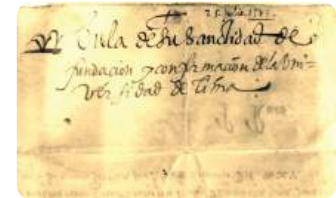 Bula de Su Sanctidad de
fundacion y confirmacion de la Uni-
versidad de Lima